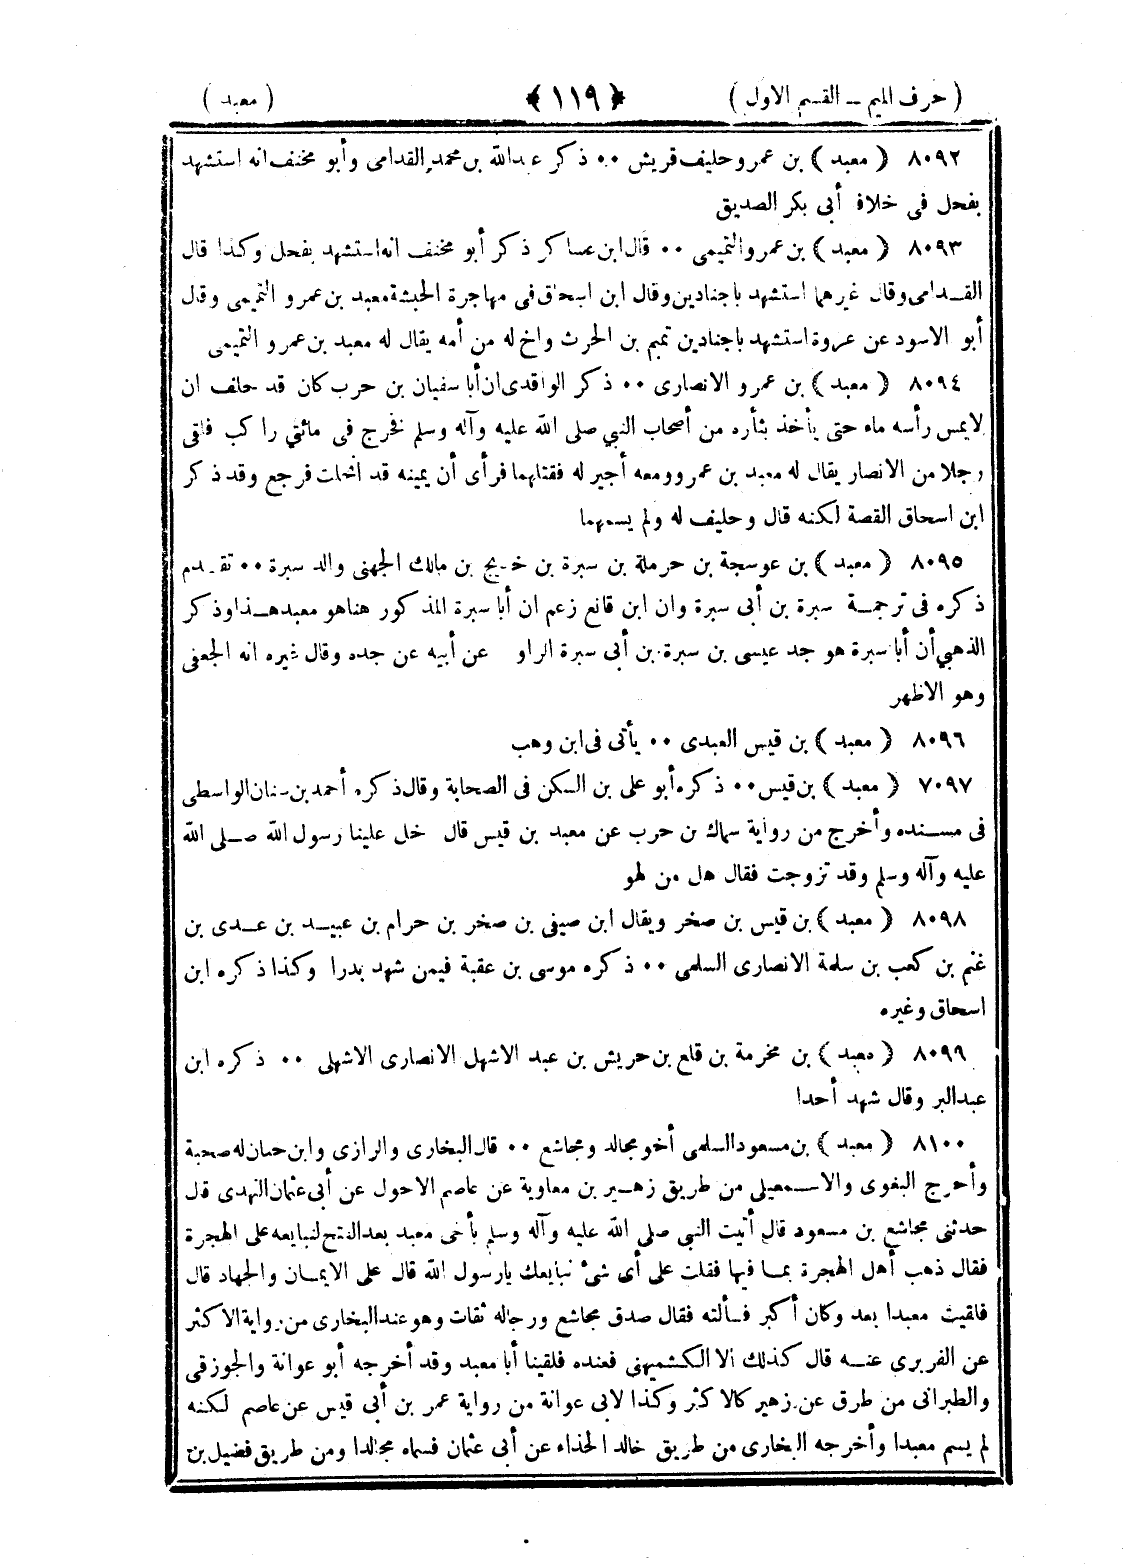 ( حرف الميم ــ القسم الاول ) ﴿ ١١٩ ﴾ ( معبد )
٨٠٩٢ ﴿ معبد ﴾ بن عمرو حليف قريش ٠٠ ذكر عبدالله بن محمد القدامى وأبو مخنف انه استشهد
بفحل فى خلافة أبى بكر الصديق
٨٠٩٣ ﴿ معبد ﴾ بن عمرو التميمى ٠٠ قال ابن عساكر ذكر أبو مخنف انه استشهد بفحل وكذا قال
القدامى وقال غيرهما استشهد باجنادين وقال ابن اسحاق فى مهاجرة الحبشة معبد بن عمرو التميمى وقال
أبو الاسود عن عروة استشهد باجنادين تميم بن الحرث واخ له من أمه يقال له معبد بن عمرو التميمى
٨٠٩٤ ﴿ معبد ﴾ بن عمرو الانصارى ٠٠ ذكر الواقدى ان أبا سفيان بن حرب كان قد حلف ان
لا يمس رأسه ماء حتى يأخذ بثأره من أصحاب النبي صلى الله عليه وآله وسلم فخرج فى مائتي راكب فلقى
رجلا من الانصار يقال له معبد بن عمرو ومعه أجير له فقتلهما فرأى أن يمينه قد انحلت فرجع وقد ذكر
ابن اسحاق القصة لكنه قال وحليف له ولم يسمهما
٨٠٩٥ ﴿ معبد ﴾ بن عوسجة بن حرملة بن سبرة بن خديج بن مالك الجهنى والد سبرة ٠٠ تقدم
ذكره فى ترجمة سبرة بن أبى سبرة وان ابن قانع زعم ان أبا سبرة المذكور هنا هو معبد هذا وذكر
الذهبي أن أبا سبرة هو جد عيسى بن سبرة بن أبى سبرة الراو عن أبيه عن جده وقال غيره انه الجعفى
وهو الاظهر
٨٠٩٦ ﴿ معبد ﴾ بن قيس العبدى ٠٠ يأتى فى ابن وهب
٧٠٩٧ ﴿ معبد ﴾ بن قيس ٠٠ ذكره أبو على بن السكن فى الصحابة وقال ذكره أحمد بن سنان الواسطى
فى مسنده وأخرج من رواية سماك بن حرب عن معبد بن قيس قال خل علينا رسول الله صلى الله
عليه وآله وسلم وقد تزوجت فقال هل من لهو
٨٠٩٨ ﴿ معبد ﴾ بن قيس بن صخر ويقال ابن صيفى بن صخر بن حرام بن عبيد بن عدى بن
غنم بن كعب بن سلمة الانصارى السلمى ٠٠ ذكره موسى بن عقبة فيمن شهد بدرا وكذا ذكره ابن
اسحاق وغيره
٨٠٩٩ ﴿ معبد ﴾ بن مخرمة بن قلع بن حريش بن عبد الاشهل الانصارى الاشهلى ٠٠ ذكره ابن
عبدالبر وقال شهد أحدا
٨١٠٠ ﴿ معبد ﴾ بن مسعود السلمى أخو مجالد ومجاشع ٠٠ قال البخارى والرازى وابن حبان له صحبة
وأخرج البغوى والاسمعيلى من طريق زهير بن معاوية عن عاصم الاحول عن أبى عثمان النهدى قال
حدثنى مجاشع بن مسعود قال أتيت النبي صلى الله عليه وآله وسلم بأخى معبد بعد الفتح لنبايعه على الهجرة
فقال ذهب أهل الهجرة بما فيها فقلت على أى شئ نبايعك يارسول الله قال على الايمان والجهاد قال
فلقيت معبدا بعد وكان أكبر فسألته فقال صدق مجاشع ورجاله ثقات وهو عند البخارى من رواية الاكثر
عن الفربرى عنه قال كذلك الا الكشميهنى فعنده فلقينا أبا معبد وقد أخرجه أبو عوانة والجوزقى
والطبرانى من طرق عن زهير كالاكثر وكذا لابى عوانة من رواية عمر بن أبى قيس عن عاصم لكنه
لم يسم معبدا وأخرجه البخارى من طريق خالد الحذاء عن أبى عثمان فسماه مجالدا ومن طريق فضيل بن